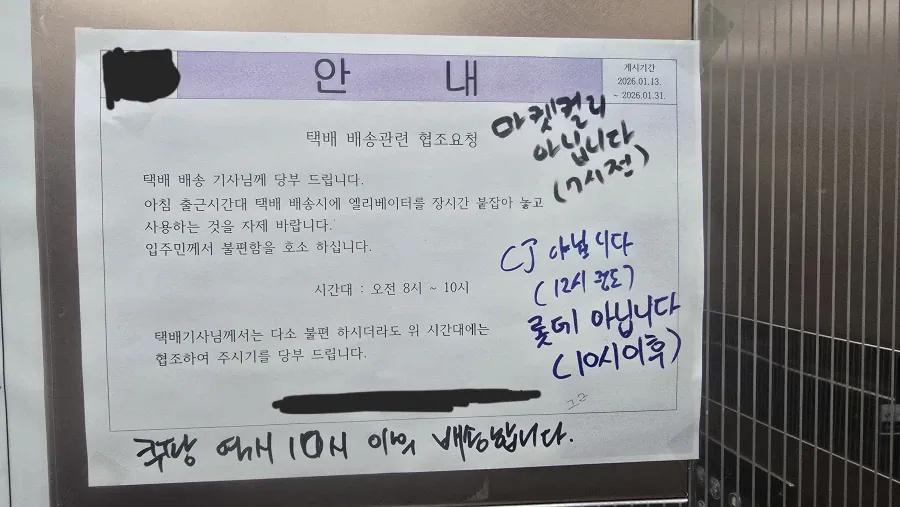 안 내
게시기간
2026.01.13.
~ 2026.01.31.
택배 배송관련 협조요청
택배 배송 기사님께 당부 드립니다.
아침 출근시간대 택배 배송시에 엘리베이터를 장시간 붙잡아 놓고
사용하는 것을 자제 바랍니다.
입주민께서 불편함을 호소 하십니다.
시간대 : 오전 8시 ~ 10시
택배기사님께서는 다소 불편 하시더라도 위 시간대에는
협조하여 주시기를 당부 드립니다.
마켓컬리
아닙니다
(7시전)
CJ 아닙니다
(12시 ​​정도)
롯데 아닙니다
(10시이후)
쿠팡 역시 10시 이후 배송합니다.